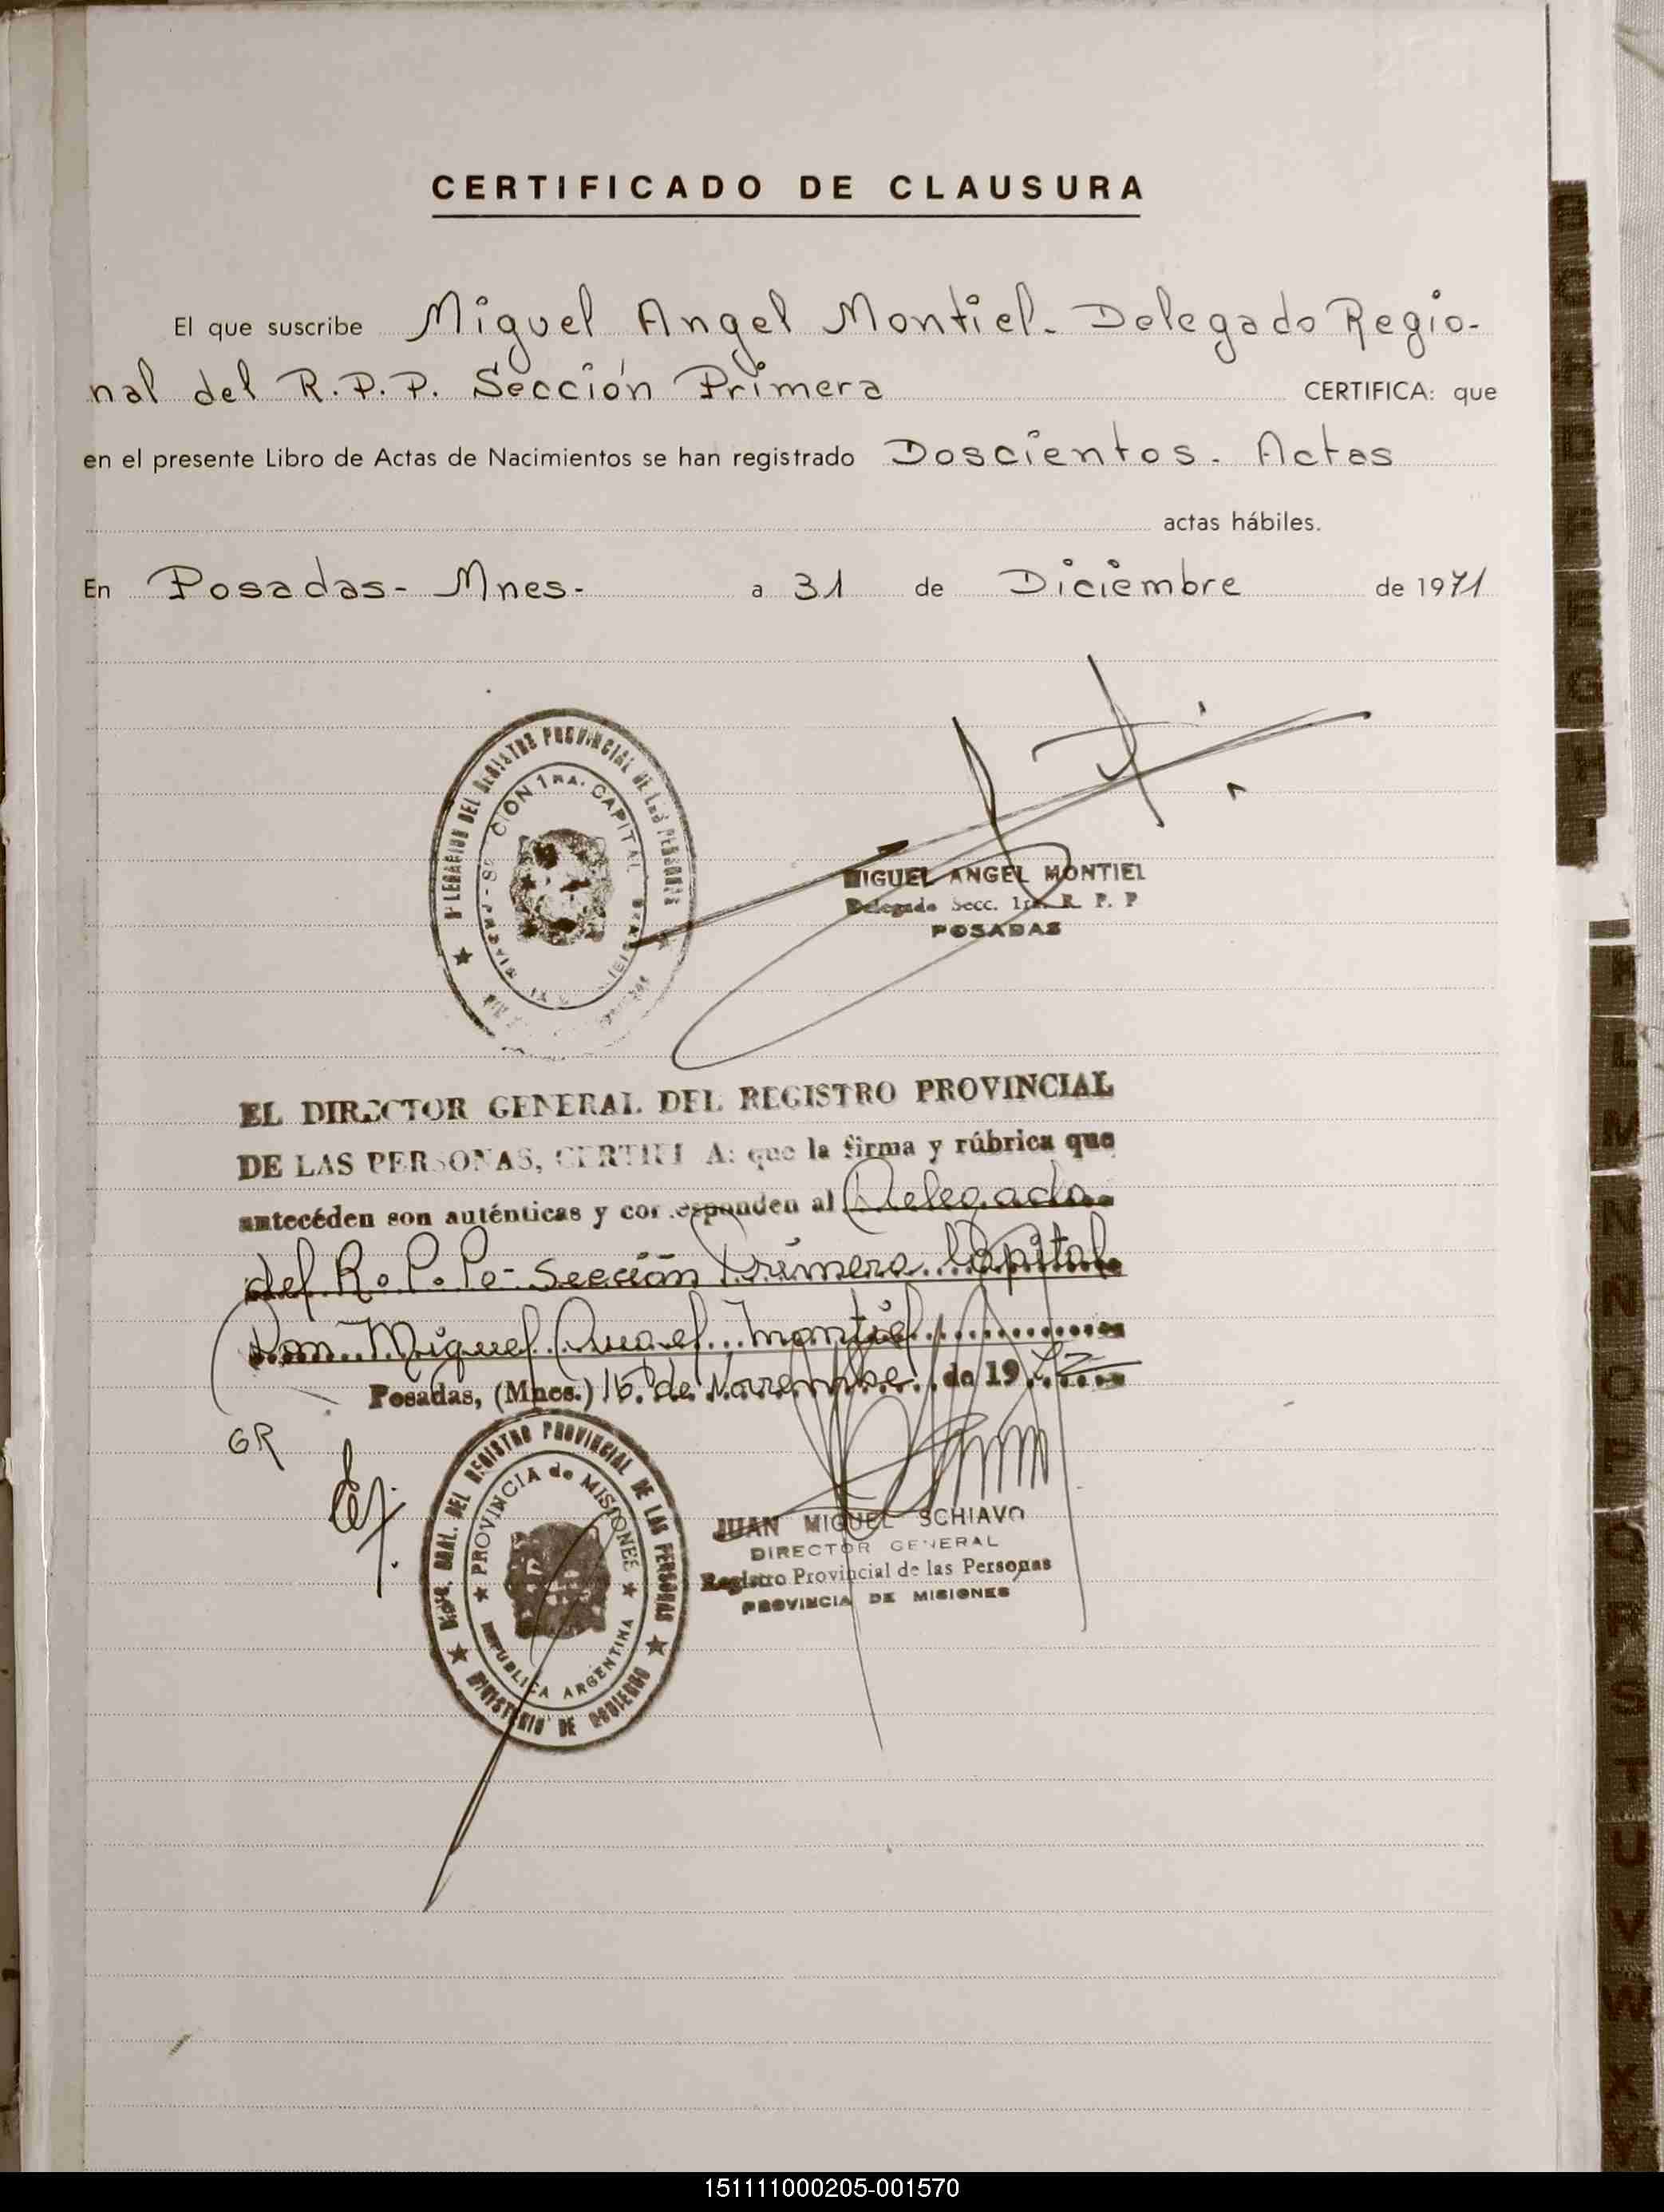 CERTIFICADO DE CLAUSURA
El que suscribe Miguel Angel Montiel - Delegado Regio-
nal del R.P.P. Sección Primera CERTIFICA: que
en el presente Libro de Actas de Nacimientos se han registrado Doscientos - Actas
actas hábiles.
En Posadas - Mnes - a 31 de Diciembre de 1971
REGISTRO PROVINCIAL DE LAS PERSONAS
CION 1RA. CAPITAL
MIGUEL ANGEL MONTIEL
Delegado Secc. 1ra. R. P. P
POSADAS
EL DIRECTOR GENERAL DEL REGISTRO PROVINCIAL
DE LAS PERSONAS, CERTIFICA: que la firma y rúbrica que
antecéden son auténticas y corresponden al Delegado
del R.P.P. - Sección Primera Capital
Don Miguel Angel Montiel
Posadas, (Mnes.) 16 de Noviembre de 1972
GR
DEL REGISTRO PROVINCIAL DE LAS PERSONAS
PROVINCIA de MISIONES
REPUBLICA ARGENTINA
MINISTERIO DE GOBIERNO
JUAN MIGUEL SCHIAVO
DIRECTOR GENERAL
Registro Provincial de las Personas
PROVINCIA DE MISIONES
151111000205-001570